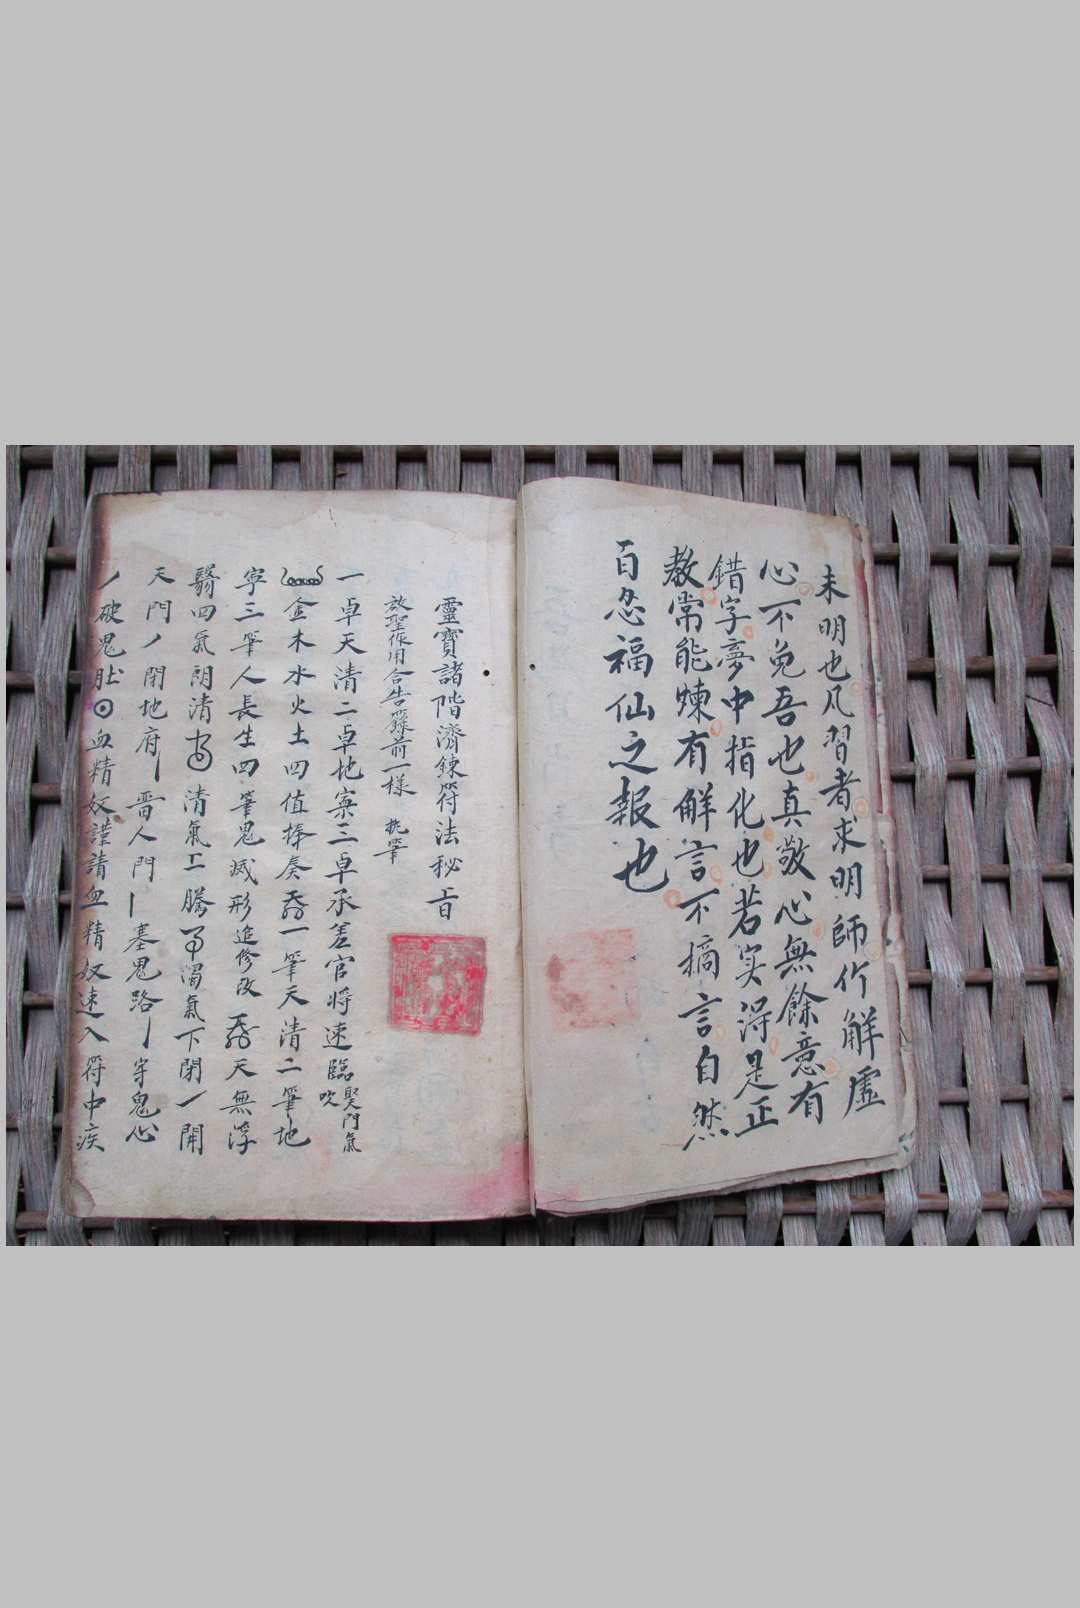 未明也凡習者求明師竹解虛
心不免吾也真敬心無餘意有
錯字夢中指化也若实得是正
教常能煉有解言不摘言自然
百忍福仙之報也
靈寶諸階濟錬符法秘旨
放聖作用合告籙前一樣 执筆
一卓天清二卓地寧三卓承差官将速臨 吹 煛門氣
金木水火土四值捧奏 一筆天清二筆地
寧三筆人長生四筆鬼滅形追修改 天無浮
翳四氣朗清 清氣上騰 濁氣下閉一開
天門丿閉地府丨畱人門丨塞鬼路丨穿鬼心
丿破鬼肚 血精奴謹請血精奴速入符中疾